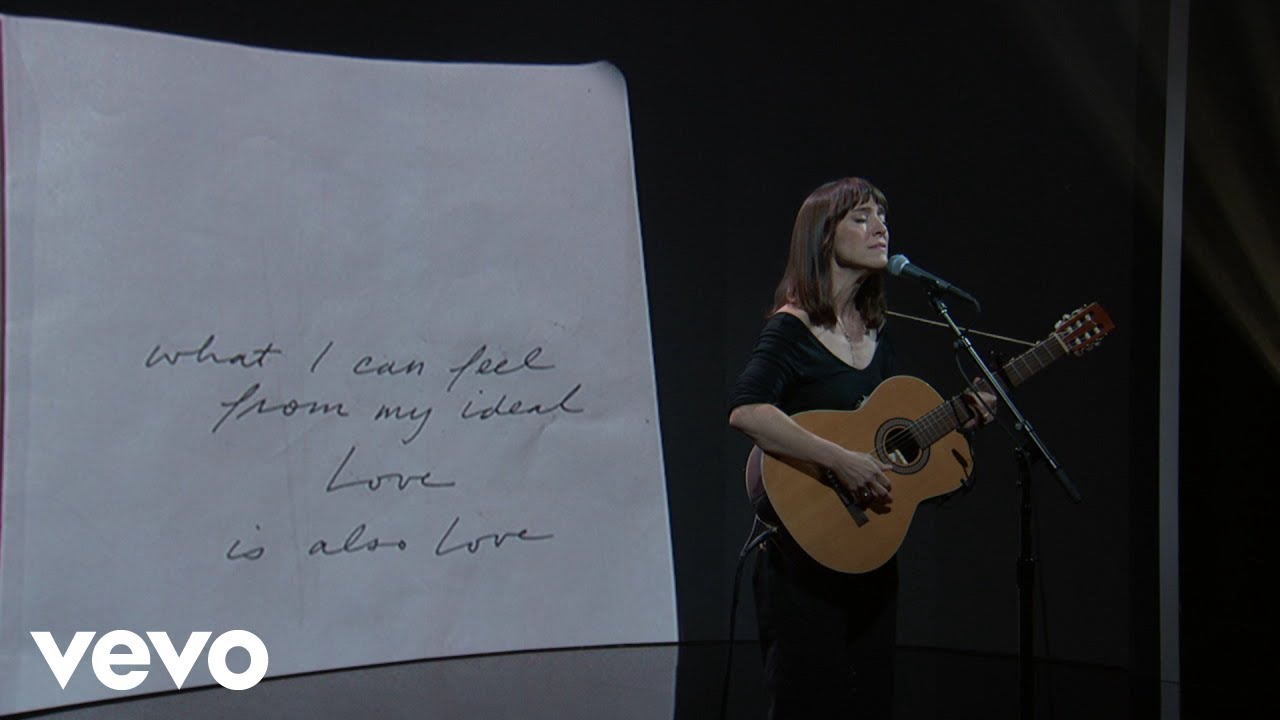 what I can feel
from my ideal
Love
is also Love
vevo